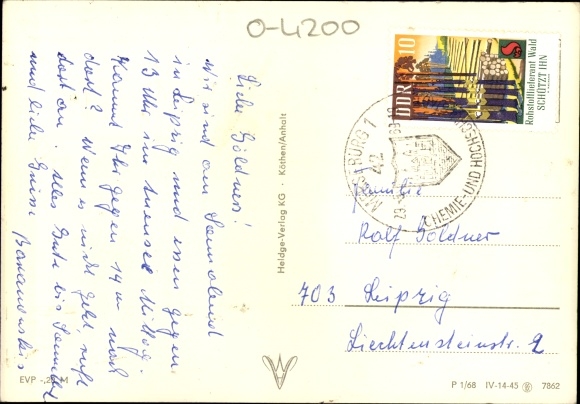 O-4200
Liebe Göldners!
Wir sind am Sonnabend
in Leipzig und essen gegen
13 Uhr im Auensee Mittag.
Kommt Ihr gegen 14 00 nach
dort? Wenn es nicht geht, ruft
dort an. Alles Gute bis Sonnabd
und liebe Grüsse
EVP -,20 M
Heldge-Verlag KG · Köthen/Anhalt
DDR 10
Rohstofflieferant Wald
SCHÜTZT IHN
MERSEBURG 1
42
CHEMIE-UND HOCHSCH
Familie
Ralf Göldner
703 Leipzig
Liechtensteinstr. 2
P 1/68 IV-14-45 7862